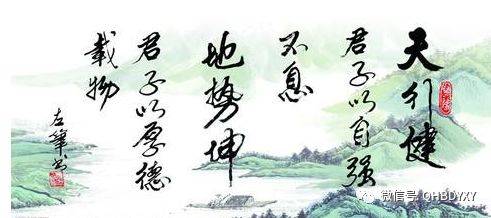 天行健
君子以自强
不息
地势坤
君子以厚德
载物
左笔书
微信号: OHBDYXY